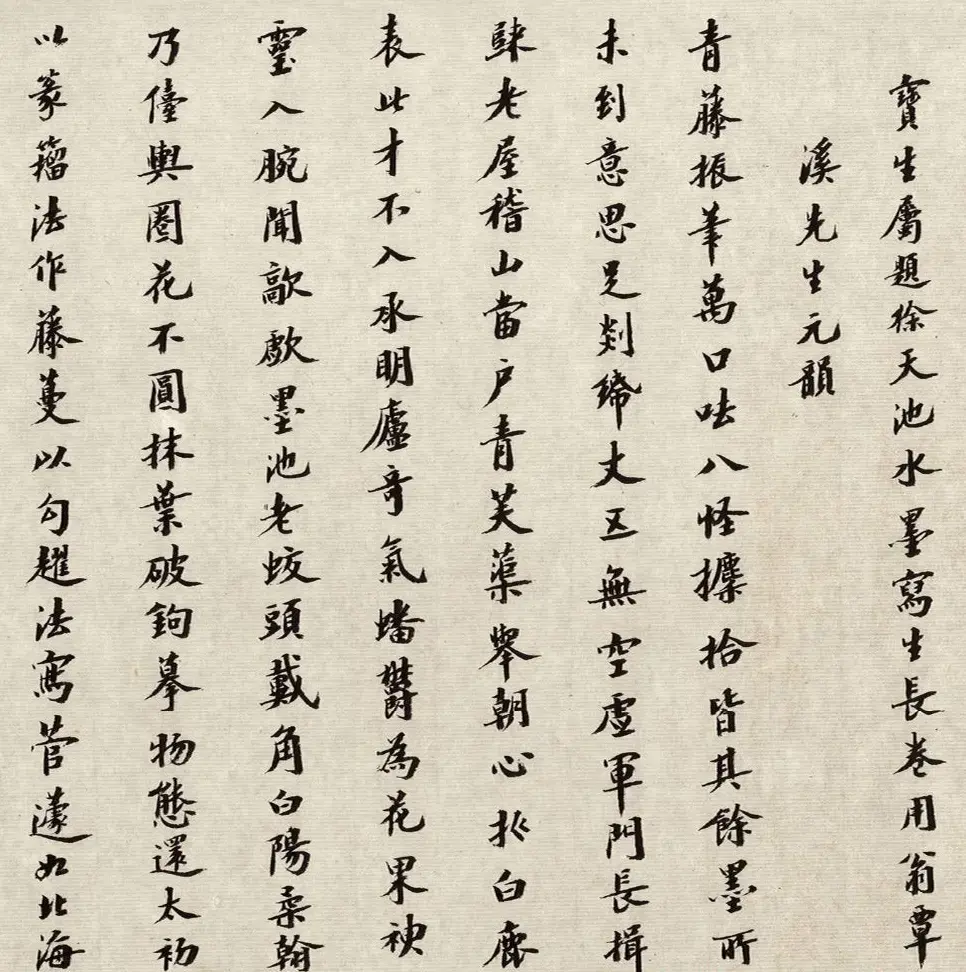 寶生屬題徐天池水墨寫生長卷用翁覃
溪先生元韻
青藤振筆萬口呿八怪攈拾皆其餘墨所
未到意思足剡絺丈五無空虛軍門長揖
歸老屋稽山當戶青芙蕖舉朝心折白鹿
表此才不入承明廬奇氣蟠鬱為花果神
靈入腕聞歊歔墨池老蛟頭戴角白陽柔翰
乃儓輿圈花不圓抹葉破鉤摹物態還太初
以篆籀法作藤蔓以勾趯法寫菅蘧如北海